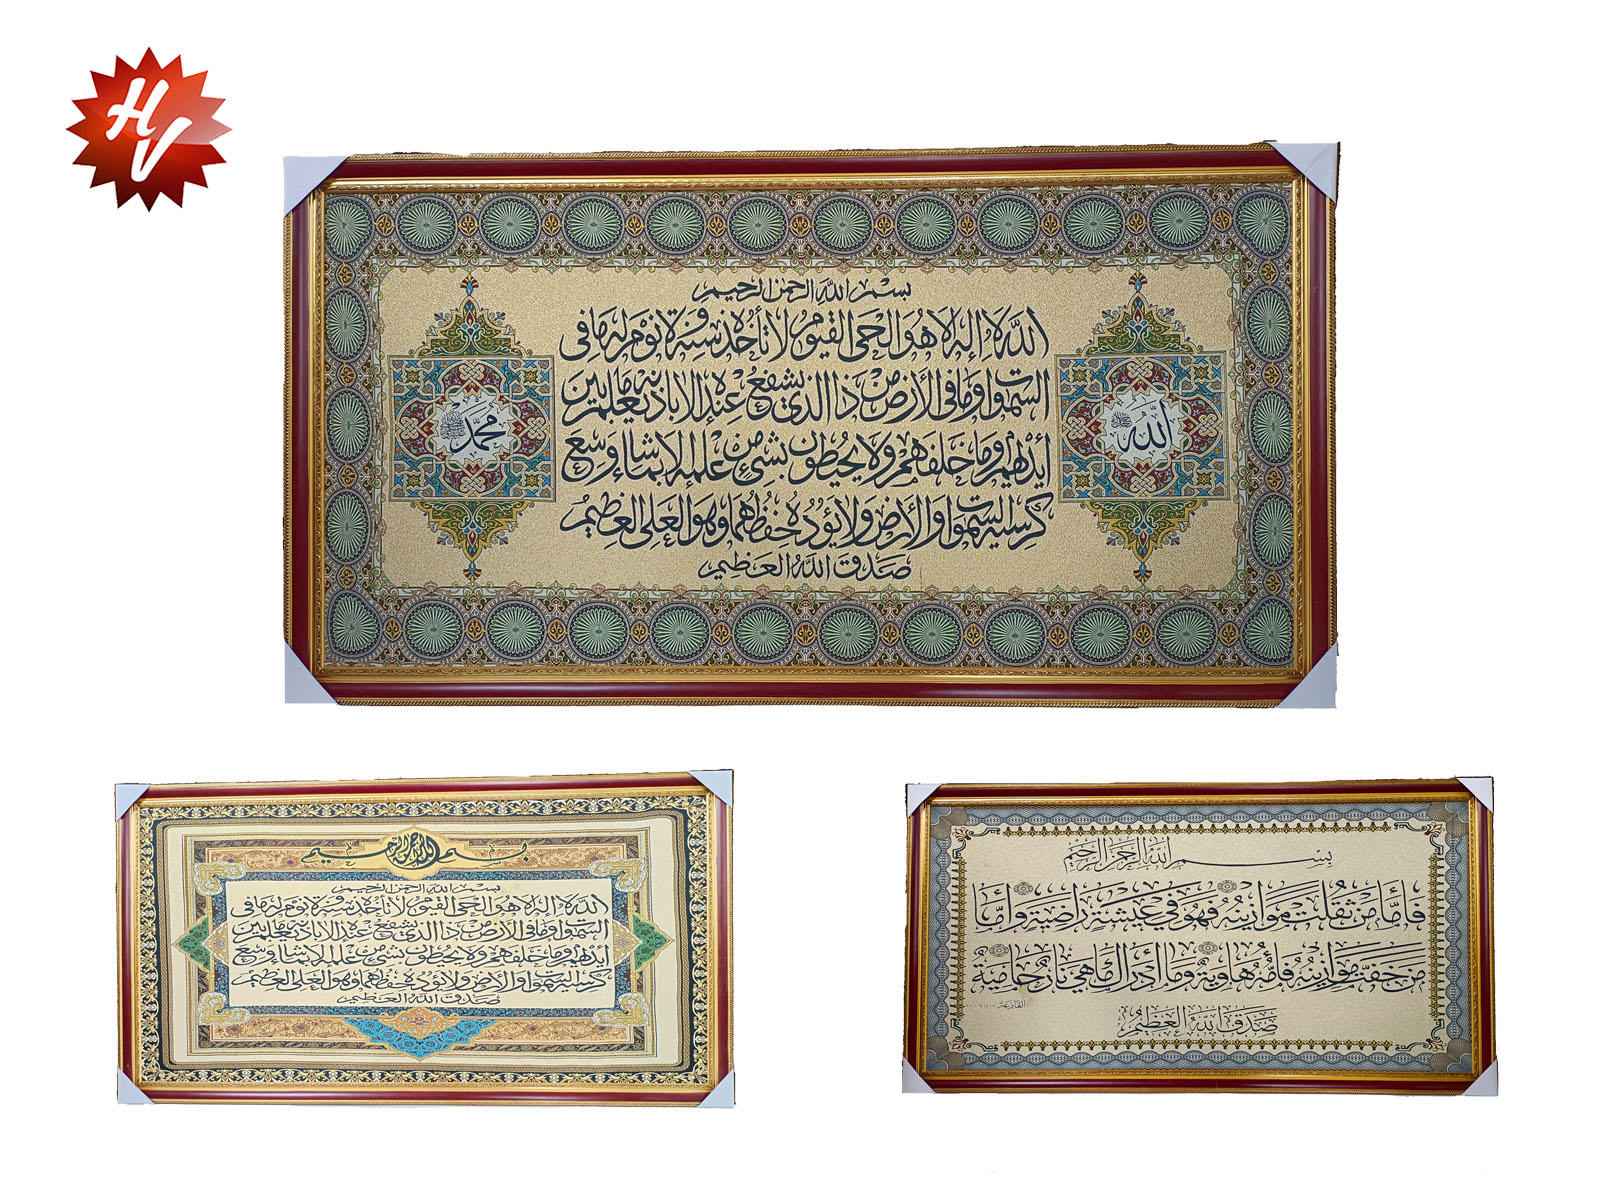 HV
بسم الله الرحمن الرحيم
الله لا إله الا هو الحي القيوم لا تأخذه سنة ولا نوم له ما في
السموات وما في الأرض من ذا الذي يشفع عنده الا باذنه يعلم ما بين
أيديهم وما خلفهم ولا يحيطون بشيء من علمه الا بما شاء وسع
كرسيه السموات والأرض ولا يؤده حفظهما وهو العلي العظيم
صدق الله العظيم
محمد
الله
بسم الله الرحمن الرحيم
بسم الله الرحمن الرحيم
الله لا اله الا هو الحي القيوم لا تأخذه سنة ولا نوم له ما في
السموات وما في الارض من ذا الذي يشفع عنده الا باذنه يعلم ما بين
أيديهم وما خلفهم ولا يحيطون بشيء من علمه الا بما شاء وسع
كرسيه السموات والأرض ولا يؤده حفظهما وهو العلي العظيم
صدق الله العظيم
بسم الله الرحمن الرحيم
فأما من ثقلت موازينه فهو في عيشة راضية وأما
من خفت موازينه فأمه هاوية وما أدراك ما هي نار حامية
القارعة
صدق الله العظيم